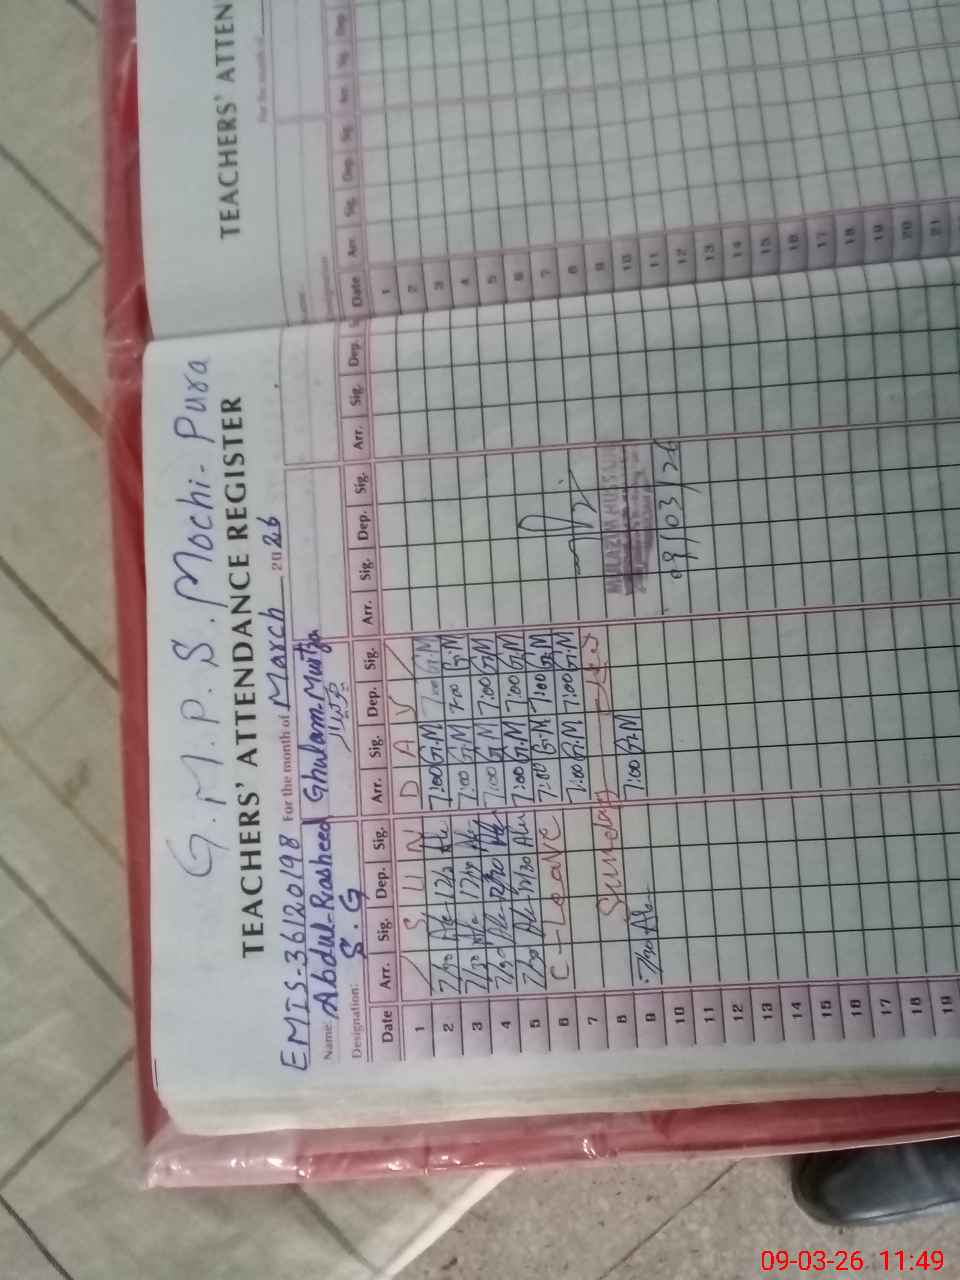 G.M.P.S. Mochi-Pura
TEACHERS' ATTENDANCE REGISTER
EMIS-36120198 For the month of March 2026
Name: Abdul-Rasheed Ghulam.Murtza
Designation: S.G
Date Arr. Sig. Dep. Sig. Arr. Sig. Dep. Sig. Arr. Sig. Dep. Sig. Arr. Sig. Dep.
1 S U N D A Y
2 7:00 G.M 7:00 G.M
3 7:00 G.M 7:00 G.M
4 7:00 G.M 7:00 G.M
5 7:00 G.M 7:00 G.M
6 C-Leave 7:00 G.M 7:00 G.M
7 7:00 G.M 7:00 G.M
8 Sunday
9 7:00 G.M
09/03/26
10
11
12
13
14
15
16
17
18
19
TEACHERS' ATTEN
For the month
Date Arr. Sig. Dep. Sig. Arr. Sig. Dep.
1
2
3
4
5
6
7
8
9
10
11
12
13
14
15
16
17
18
19
20
21
09-03-26 11:49